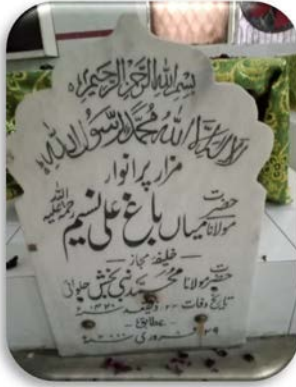 بسم اللہ الرحمن الرحیم
لا الہ الا اللہ محمد رسول اللہ
مزار پر انوار
حضرت مولانا میاں باغ علی نسیم رحمۃ اللہ علیہ
خلیفہ مجاز
حضرت مولانا محمد نبی بخش حلوائی
تاریخ وفات
بمطابق
فروری